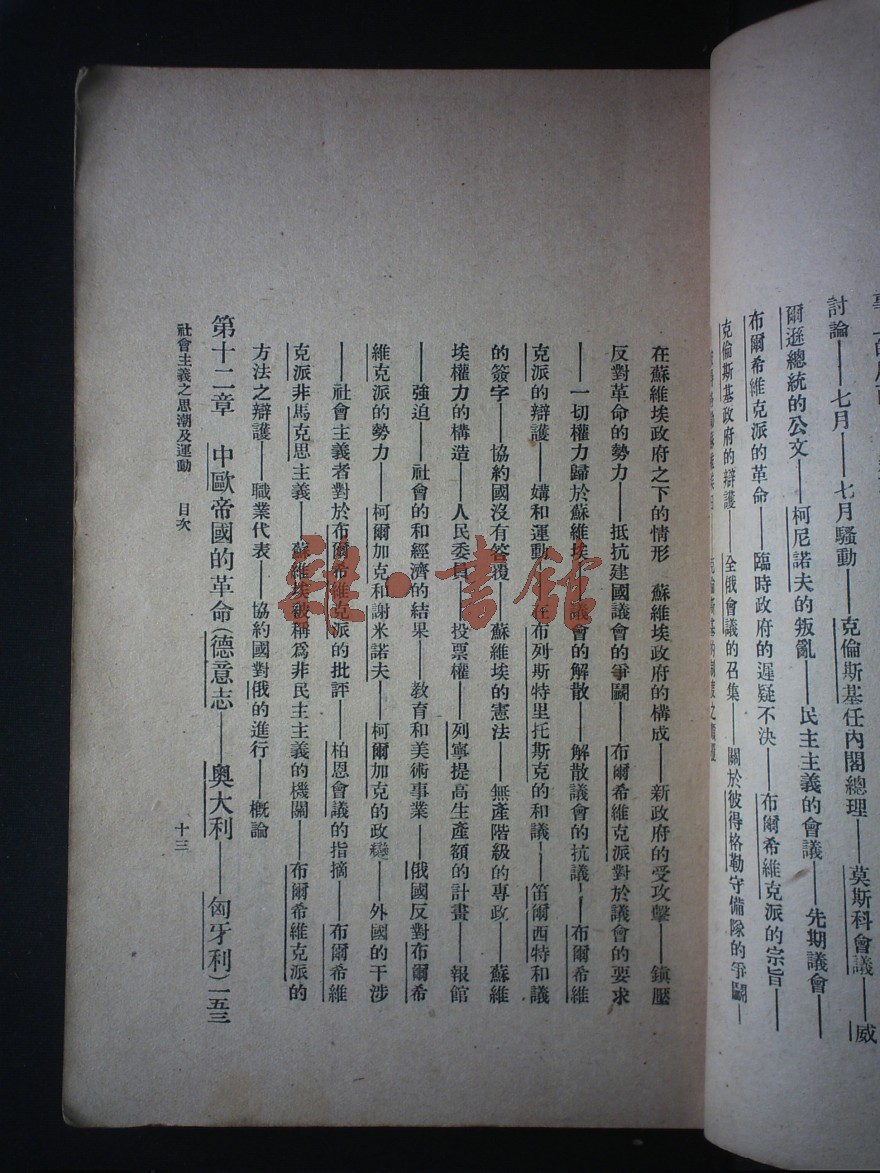 討論——七月——七月騷動——克倫斯基任內閣總理——莫斯科會議——威
爾遜總統的公文——柯尼諾夫的叛亂——民主主義的會議——先期議會——
布爾希維克派的革命——臨時政府的遲疑不決——布爾希維克派的宗旨——
克倫斯基政府的辯護——全俄會議的召集——關於彼得格勒守備隊的爭鬭——
在蘇維埃政府之下的情形　蘇維埃政府的構成——新政府的受攻擊——鎮壓
反對革命的勢力——抵抗建國議會的爭鬭——布爾希維克派對於議會的要求
——一切權力歸於蘇維埃——議會的解散——解散議會的抗議——布爾希維
克派的辯護——媾和運動——在布列斯特里托斯克的和議——笛爾西特和議
的簽字——協約國沒有答覆——蘇維埃的憲法——無產階級的專政——蘇維
埃權力的構造——人民委員——投票權——列寧提高生產額的計畫——報館
——強迫——社會的和經濟的結果——教育和美術事業——俄國反對布爾希
維克派的勢力——柯爾加克和謝米諾夫——柯爾加克的政變——外國的干涉
——社會主義者對於布爾希維克派的批評——柏恩會議的指摘——布爾希維
克派非馬克思主義——蘇維埃被稱爲非民主主義的機關——布爾希維克派的
方法之辯護——職業代表——協約國對俄的進行——概論
第十二章　中歐帝國的革命（德意志——奧大利——匈牙利）一五三
社會主義之思潮及運動　目次　十三
雜·書館